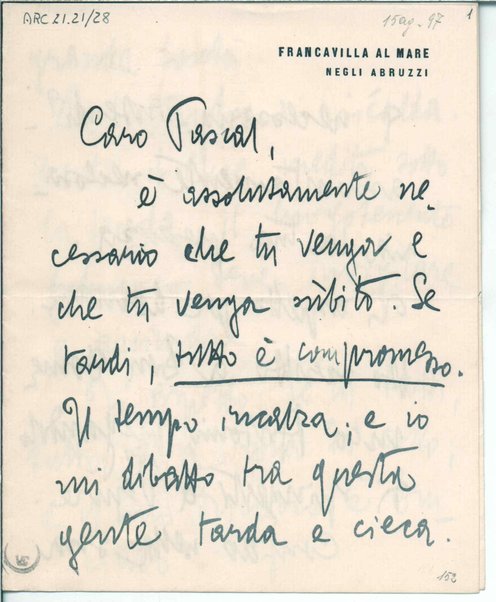 ARC 21.21/28
15 ag. 97
1
FRANCAVILLA AL MARE
NEGLI ABRUZZI
Caro Pascal,
è assolutamente ne_
cessario che tu venga e
che tu venga sùbito. Se
tardi, tutto è compromesso.
Il tempo incalza; e io
mi dibatto tra questa
gente tarda e cieca.
152